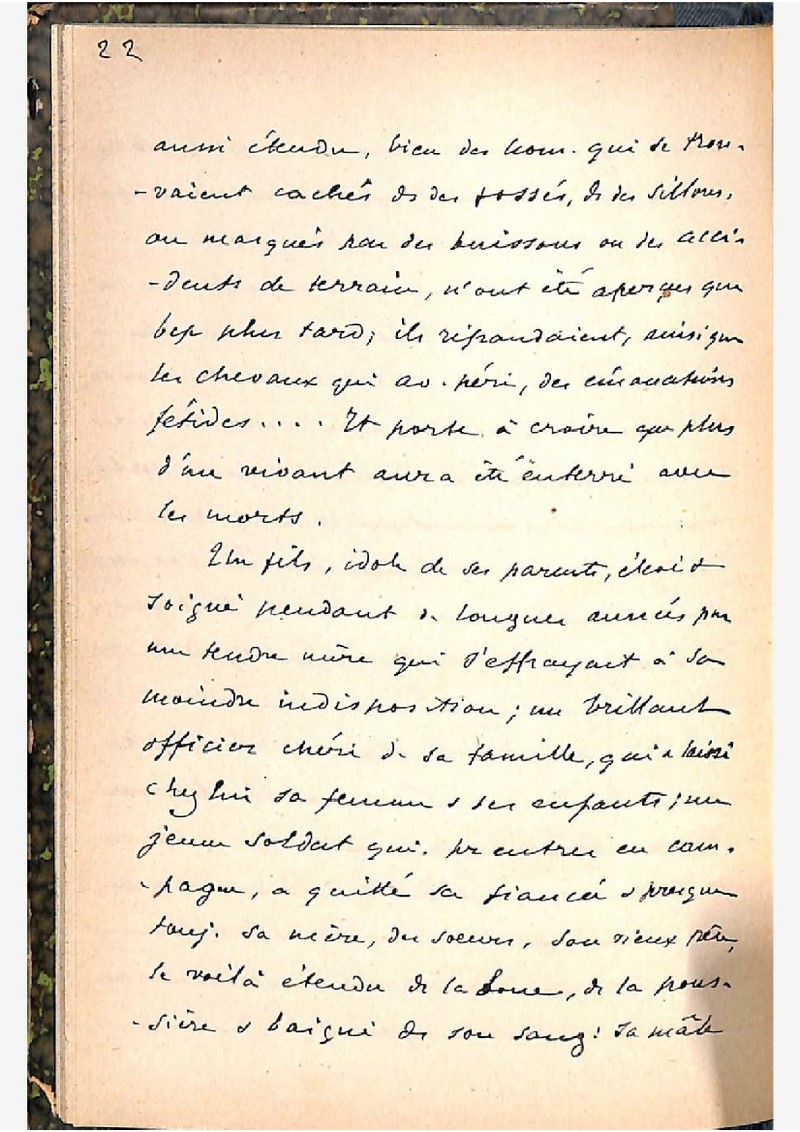 22
aussi étendu, bien des hom. qui se trou-
-vaient cachés ds des fossés, ds des sillons,
ou masqués par des buissons ou des acci-
-dents de terrain, n'ont été aperçus que
bcp plus tard; ils répandaient, ainsi que
les chevaux qui av. péri, des émanations
fétides.... Et porte à croire que plus
d'un vivant aura été enterré avec
les morts.
Un fils, idole de ses parents, élevé &
soigné pendant de longues années par
une tendre mère qui s'effrayait à sa
moindre indisposition; un brillant
officier chéri de sa famille, qui a laissé
chez lui sa femme & ses enfants; un
jeune soldat qui. pr entrer en cam-
-pagne, a quitté sa fiancée & presque
touj. sa mère, des soeurs, son vieux père,
le voilà étendu ds la boue, ds la pous-
-sière & baigné ds son sang! sa mâle